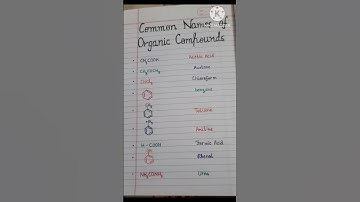 Common Names of
Organic Compounds
CH₃COOH Acetic Acid
CH₃COCH₃ Acetone
CHCl₃ Chloroform
benzene
CH₃
Toluene
NH₂
Aniline
H - COOH Formic Acid
Phenol
NH₂CONH₂ Urea